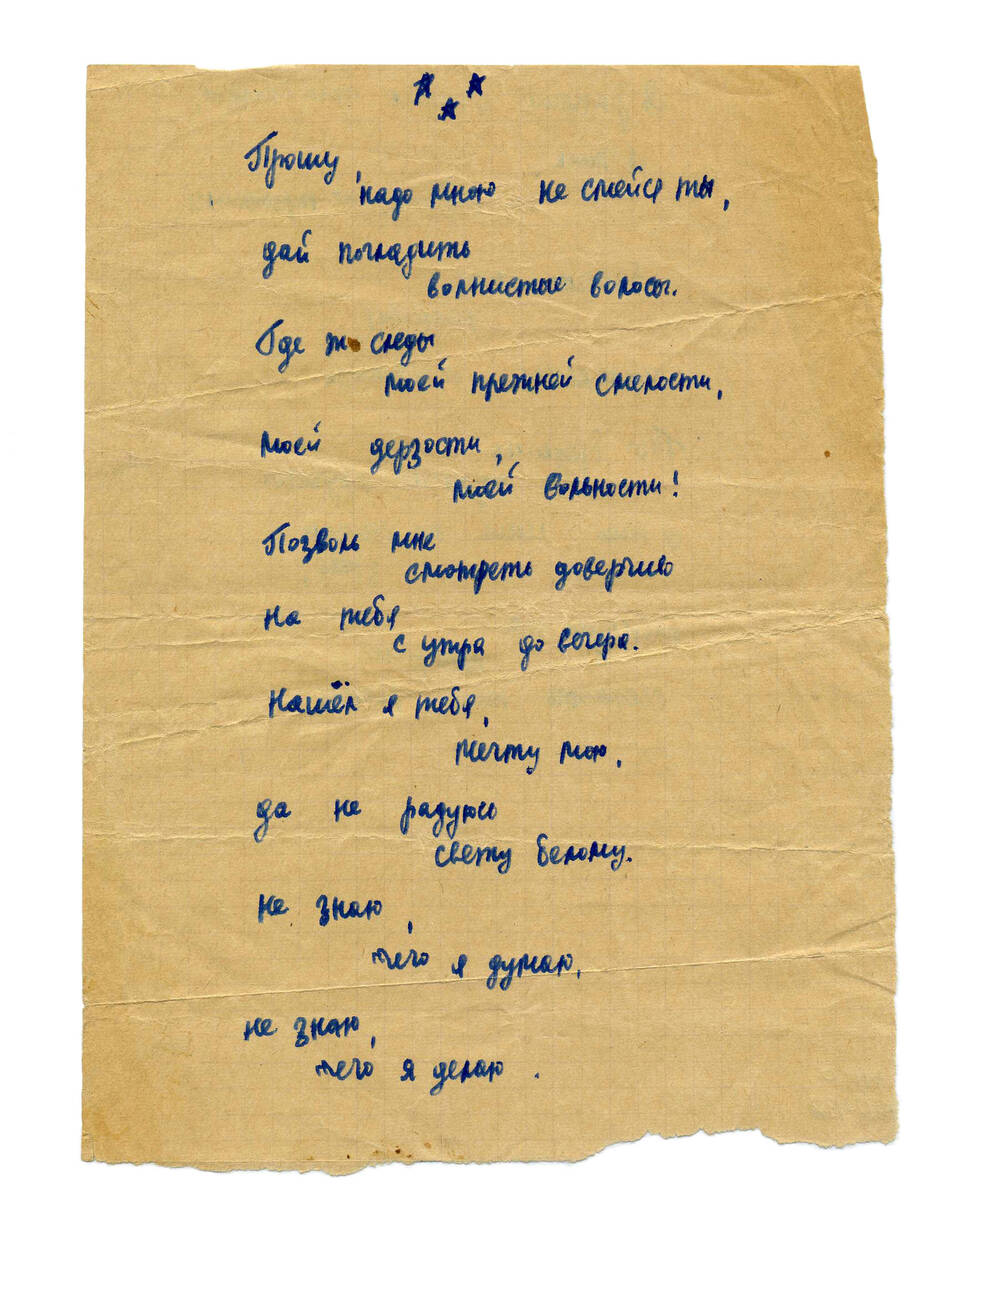 Прошу,
надо мною не смейся ты,
дай погладить
волнистые волосы.
Где ж следы
моей прежней смелости,
моей дерзости,
моей вольности!
Позволь мне
смотреть доверчиво
на тебя
с утра до вечера.
Нашёл я тебя,
мечту мою,
да не радуюсь
свету белому.
не знаю,
чего я думаю,
не знаю,
чего я делаю.